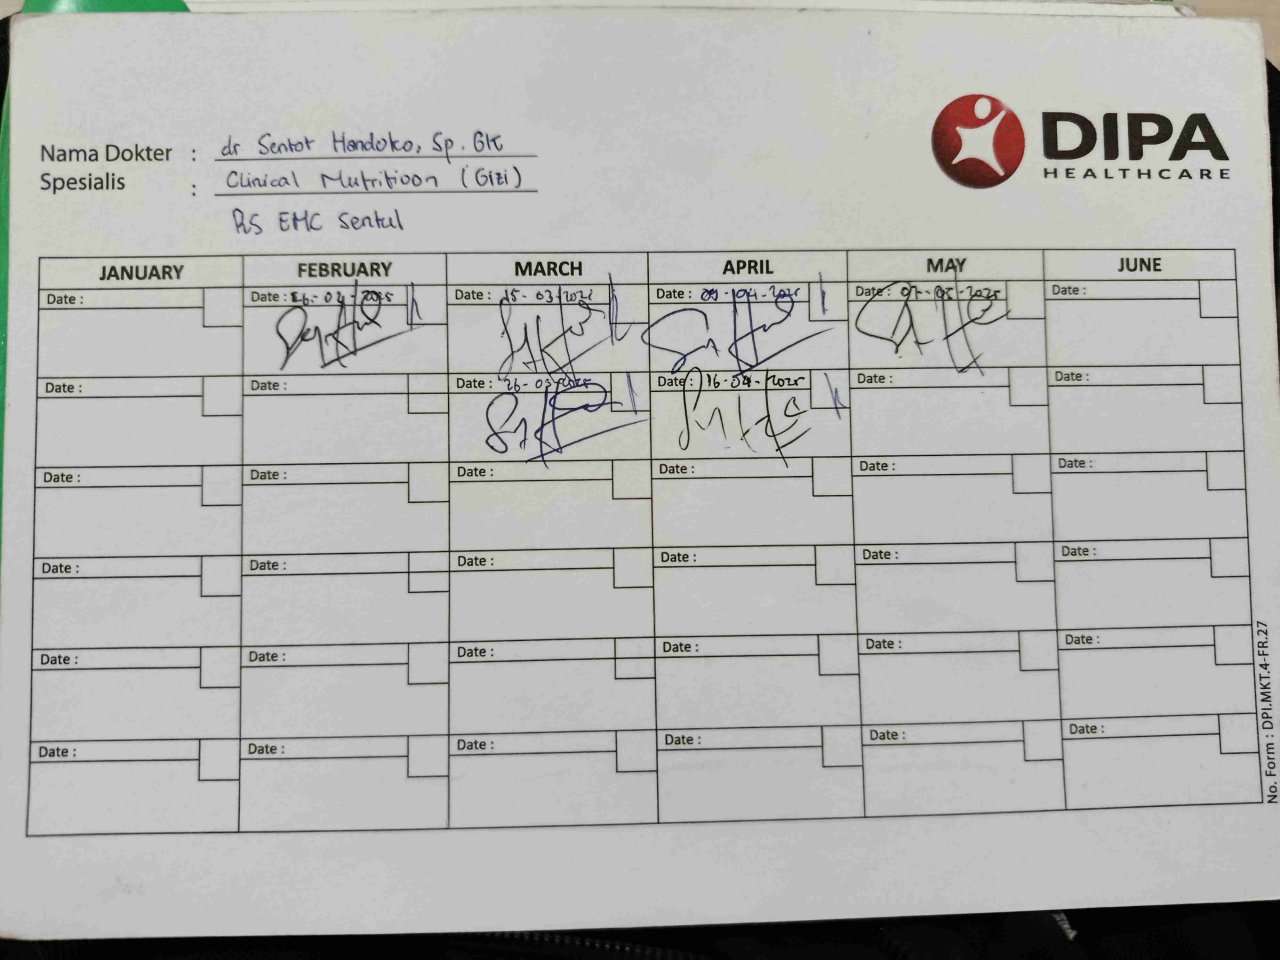 DIPA
HEALTHCARE
Nama Dokter : dr Sentot Handoko, Sp. GK
Spesialis : Clinical Nutritioon (Gizi)
RS EMC Sentul
JANUARY FEBRUARY MARCH APRIL MAY JUNE
Date : Date : 26-02-2025 Date : 15-03-2025 Date : 09-04-2025 Date : 07-05-2025 Date :
Date : Date : Date : 26-03-2025 Date : 16-04-2025 Date : Date :
Date : Date : Date : Date : Date : Date :
Date : Date : Date : Date : Date : Date :
Date : Date : Date : Date : Date : Date :
Date : Date : Date : Date : Date : Date :
No. Form : DPI.MKT.4-FR.27